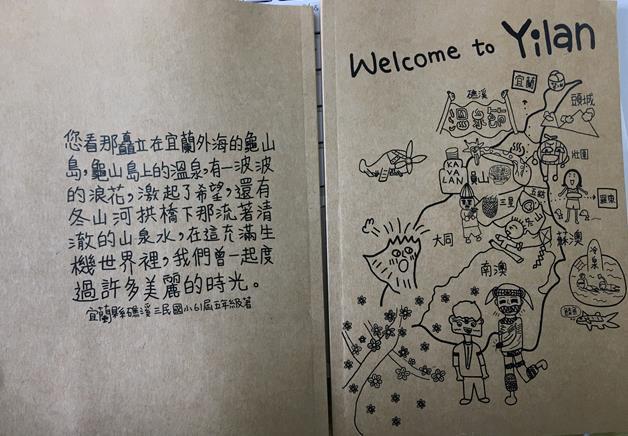 您看那矗立在宜蘭外海的龜山
島,龜山島上的溫泉,有一波波
的浪花,激起了希望,還有
冬山河拱橋下那流著清
澈的山泉水,在這充滿生
機世界裡,我們曾一起度
過許多美麗的時光。
宜蘭縣礁溪三民國小61屆五年級著
Welcome to Yilan
宜蘭
礁溪
頭城
溫泉節
壯圍
KA
VA
LAN
員山
五結
羅東
三星
冬山
大同
蘇澳
冷泉
南澳